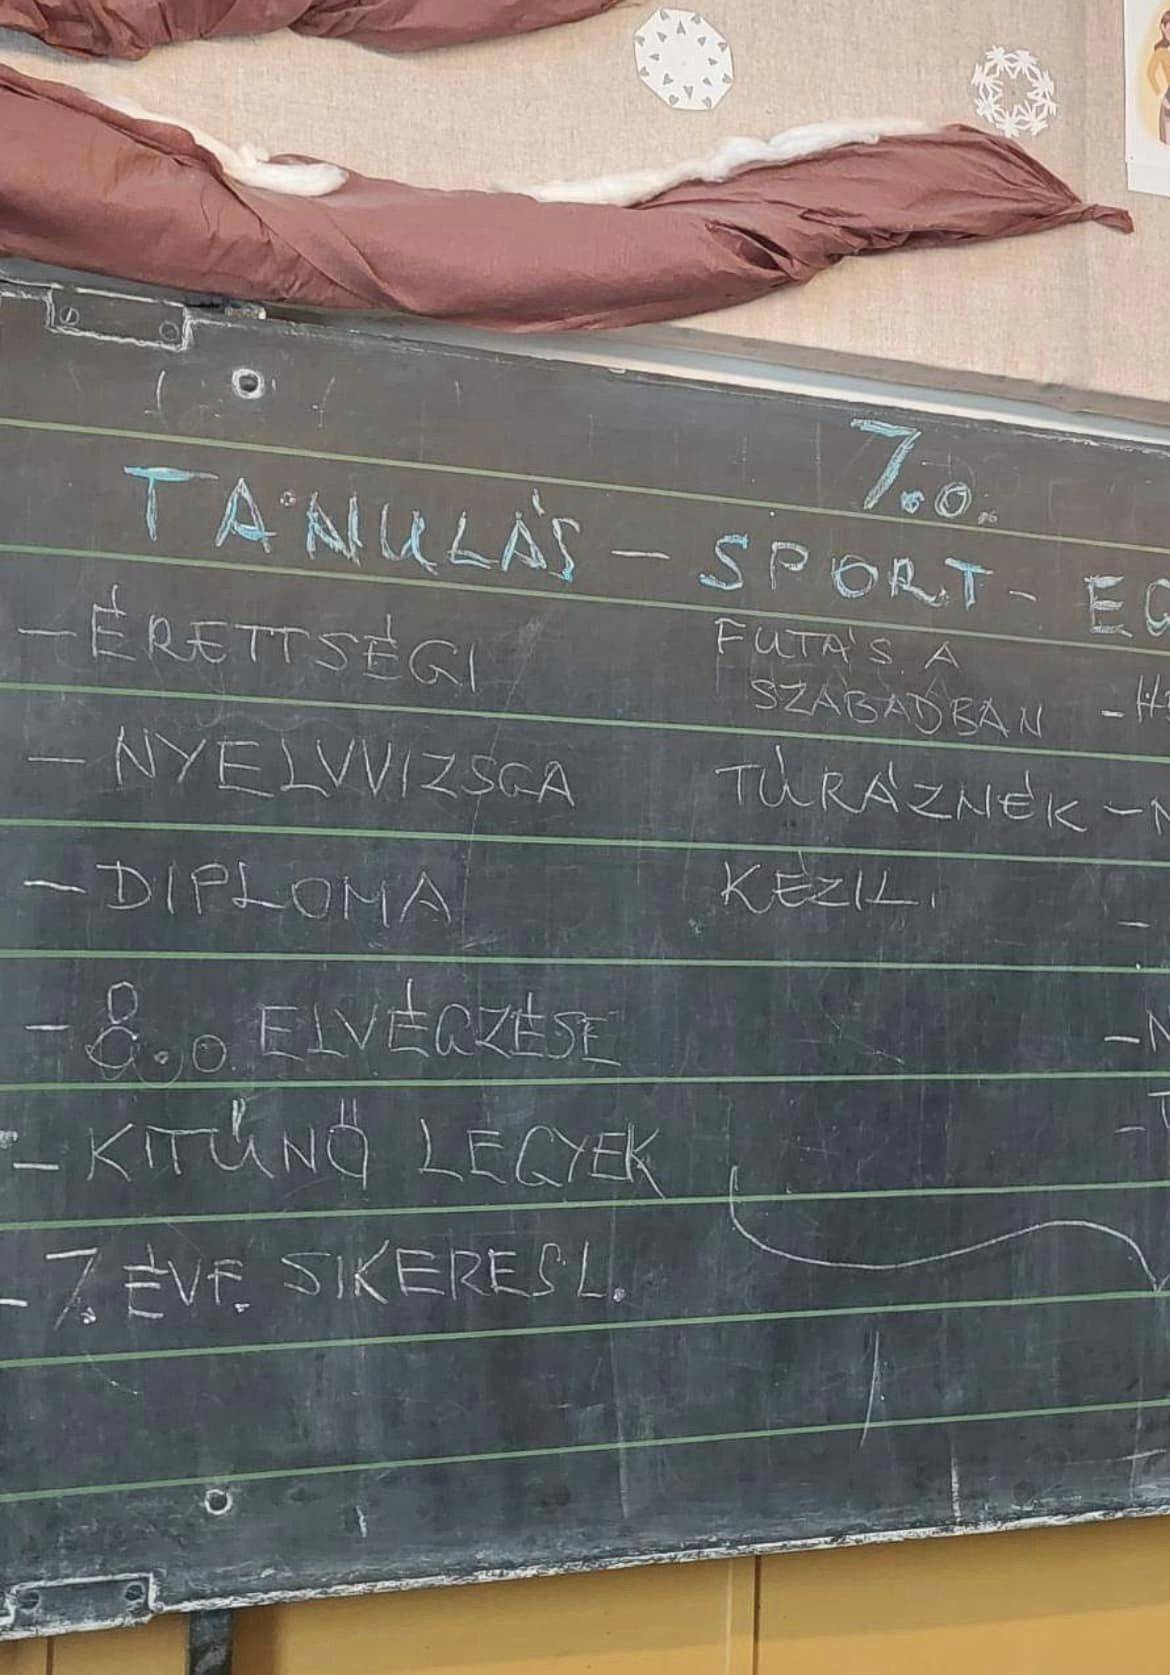 7.o.
TANULÁS – SPORT –
– ÉRETTSÉGI
– NYELVVIZSGA
– DIPLOMA
– 8.o. ELVÉGZÉSE
– KITŰNŐ LEGYEK
– 7. ÉVF. SIKERES L.
FUTÁS A
SZABADBAN
TÚRÁZNÉK
KÉZIL.